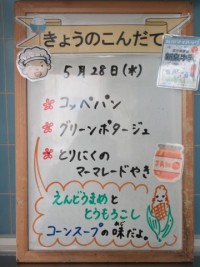 きょうのこんだて
5月28日(水)
コッペパン
グリーンポタージュ
とりにくの
マーマレードやき
えんどうまめと
とうもろこし
コーンスープの味だよ。